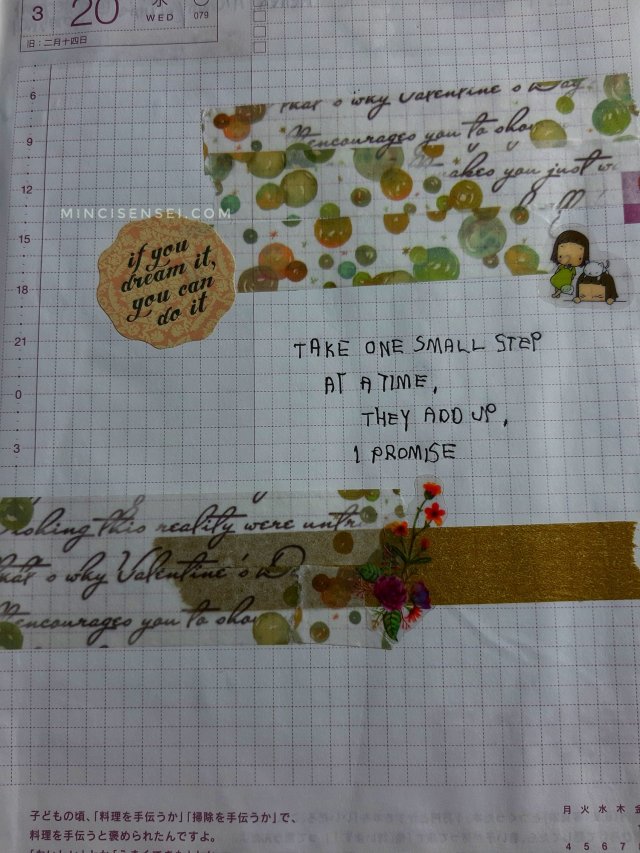 3 20 水 WED 079
旧:二月十四日
6
9
12
15
18
21
0
3
why Valentine's Day
Encourages you to show
makes you just
MINCISENSEI.COM
if you
dream it,
you can
do it
TAKE ONE SMALL STEP
AT A TIME,
THEY ADD UP,
I PROMISE
this reality were untr
that's why Valentine's D
Encourages you to show
子どもの頃、「料理を手伝うか」「掃除を手伝うか」で、
料理を手伝うと褒められたんですよ。
月 火 水 木 金
4 5 6 7